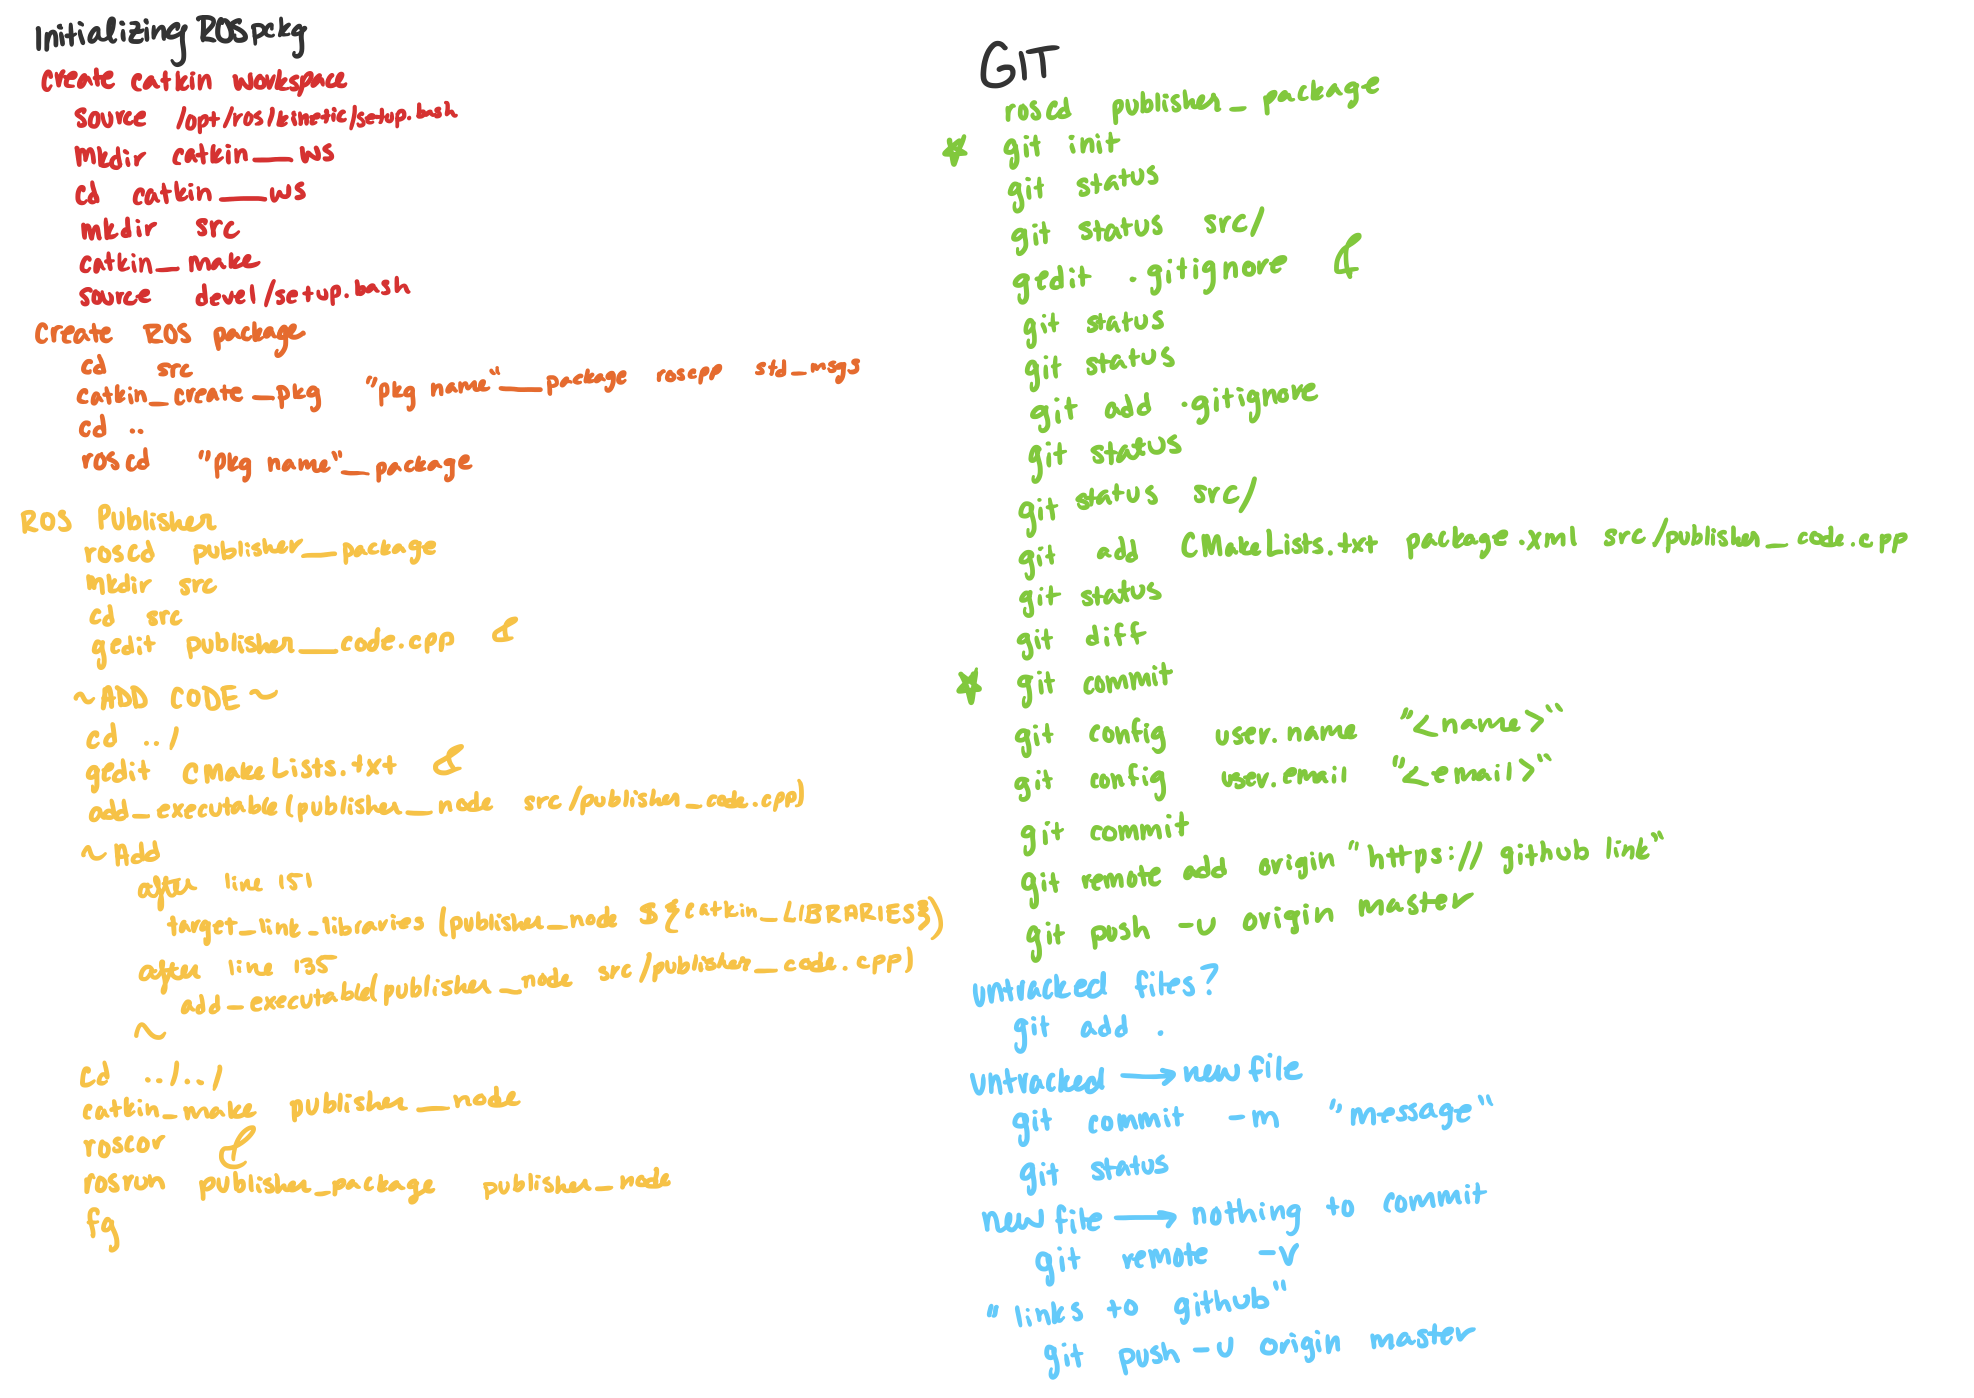 Initializing ROS pckg
create catkin workspace
source /opt/ros/kinetic/setup.bash
mkdir catkin_ws
cd catkin_ws
mkdir src
catkin_make
source devel/setup.bash
Create ROS package
cd src
catkin_create_pkg "pkg name"_package roscpp std_msgs
cd ..
roscd "pkg name"_package
ROS Publisher
roscd publisher_package
mkdir src
cd src
gedit publisher_code.cpp &
~ADD CODE~
cd ../
gedit CMakeLists.txt &
add_executable(publisher_node src/publisher_code.cpp)
~Add
after line 151
target_link_libraries (publisher_node ${catkin_LIBRARIES})
after line 135
add_executable(publisher_node src/publisher_code.cpp)
~
cd ../../
catkin_make publisher_node
roscor &
rosrun publisher_package publisher_node
fg
GIT
roscd publisher_package
☆ git init
git status
git status src/
gedit .gitignore &
git status
git status
git add .gitignore
git status
git status src/
git add CMakeLists.txt package.xml src/publisher_code.cpp
git status
git diff
☆ git commit
git config user.name "<name>"
git config user.email "<email>"
git commit
git remote add origin "https:// github link"
git push -u origin master
untracked files?
git add .
untracked → new file
git commit -m "message"
git status
new file → nothing to commit
git remote -v
"links to github"
git push -u origin master